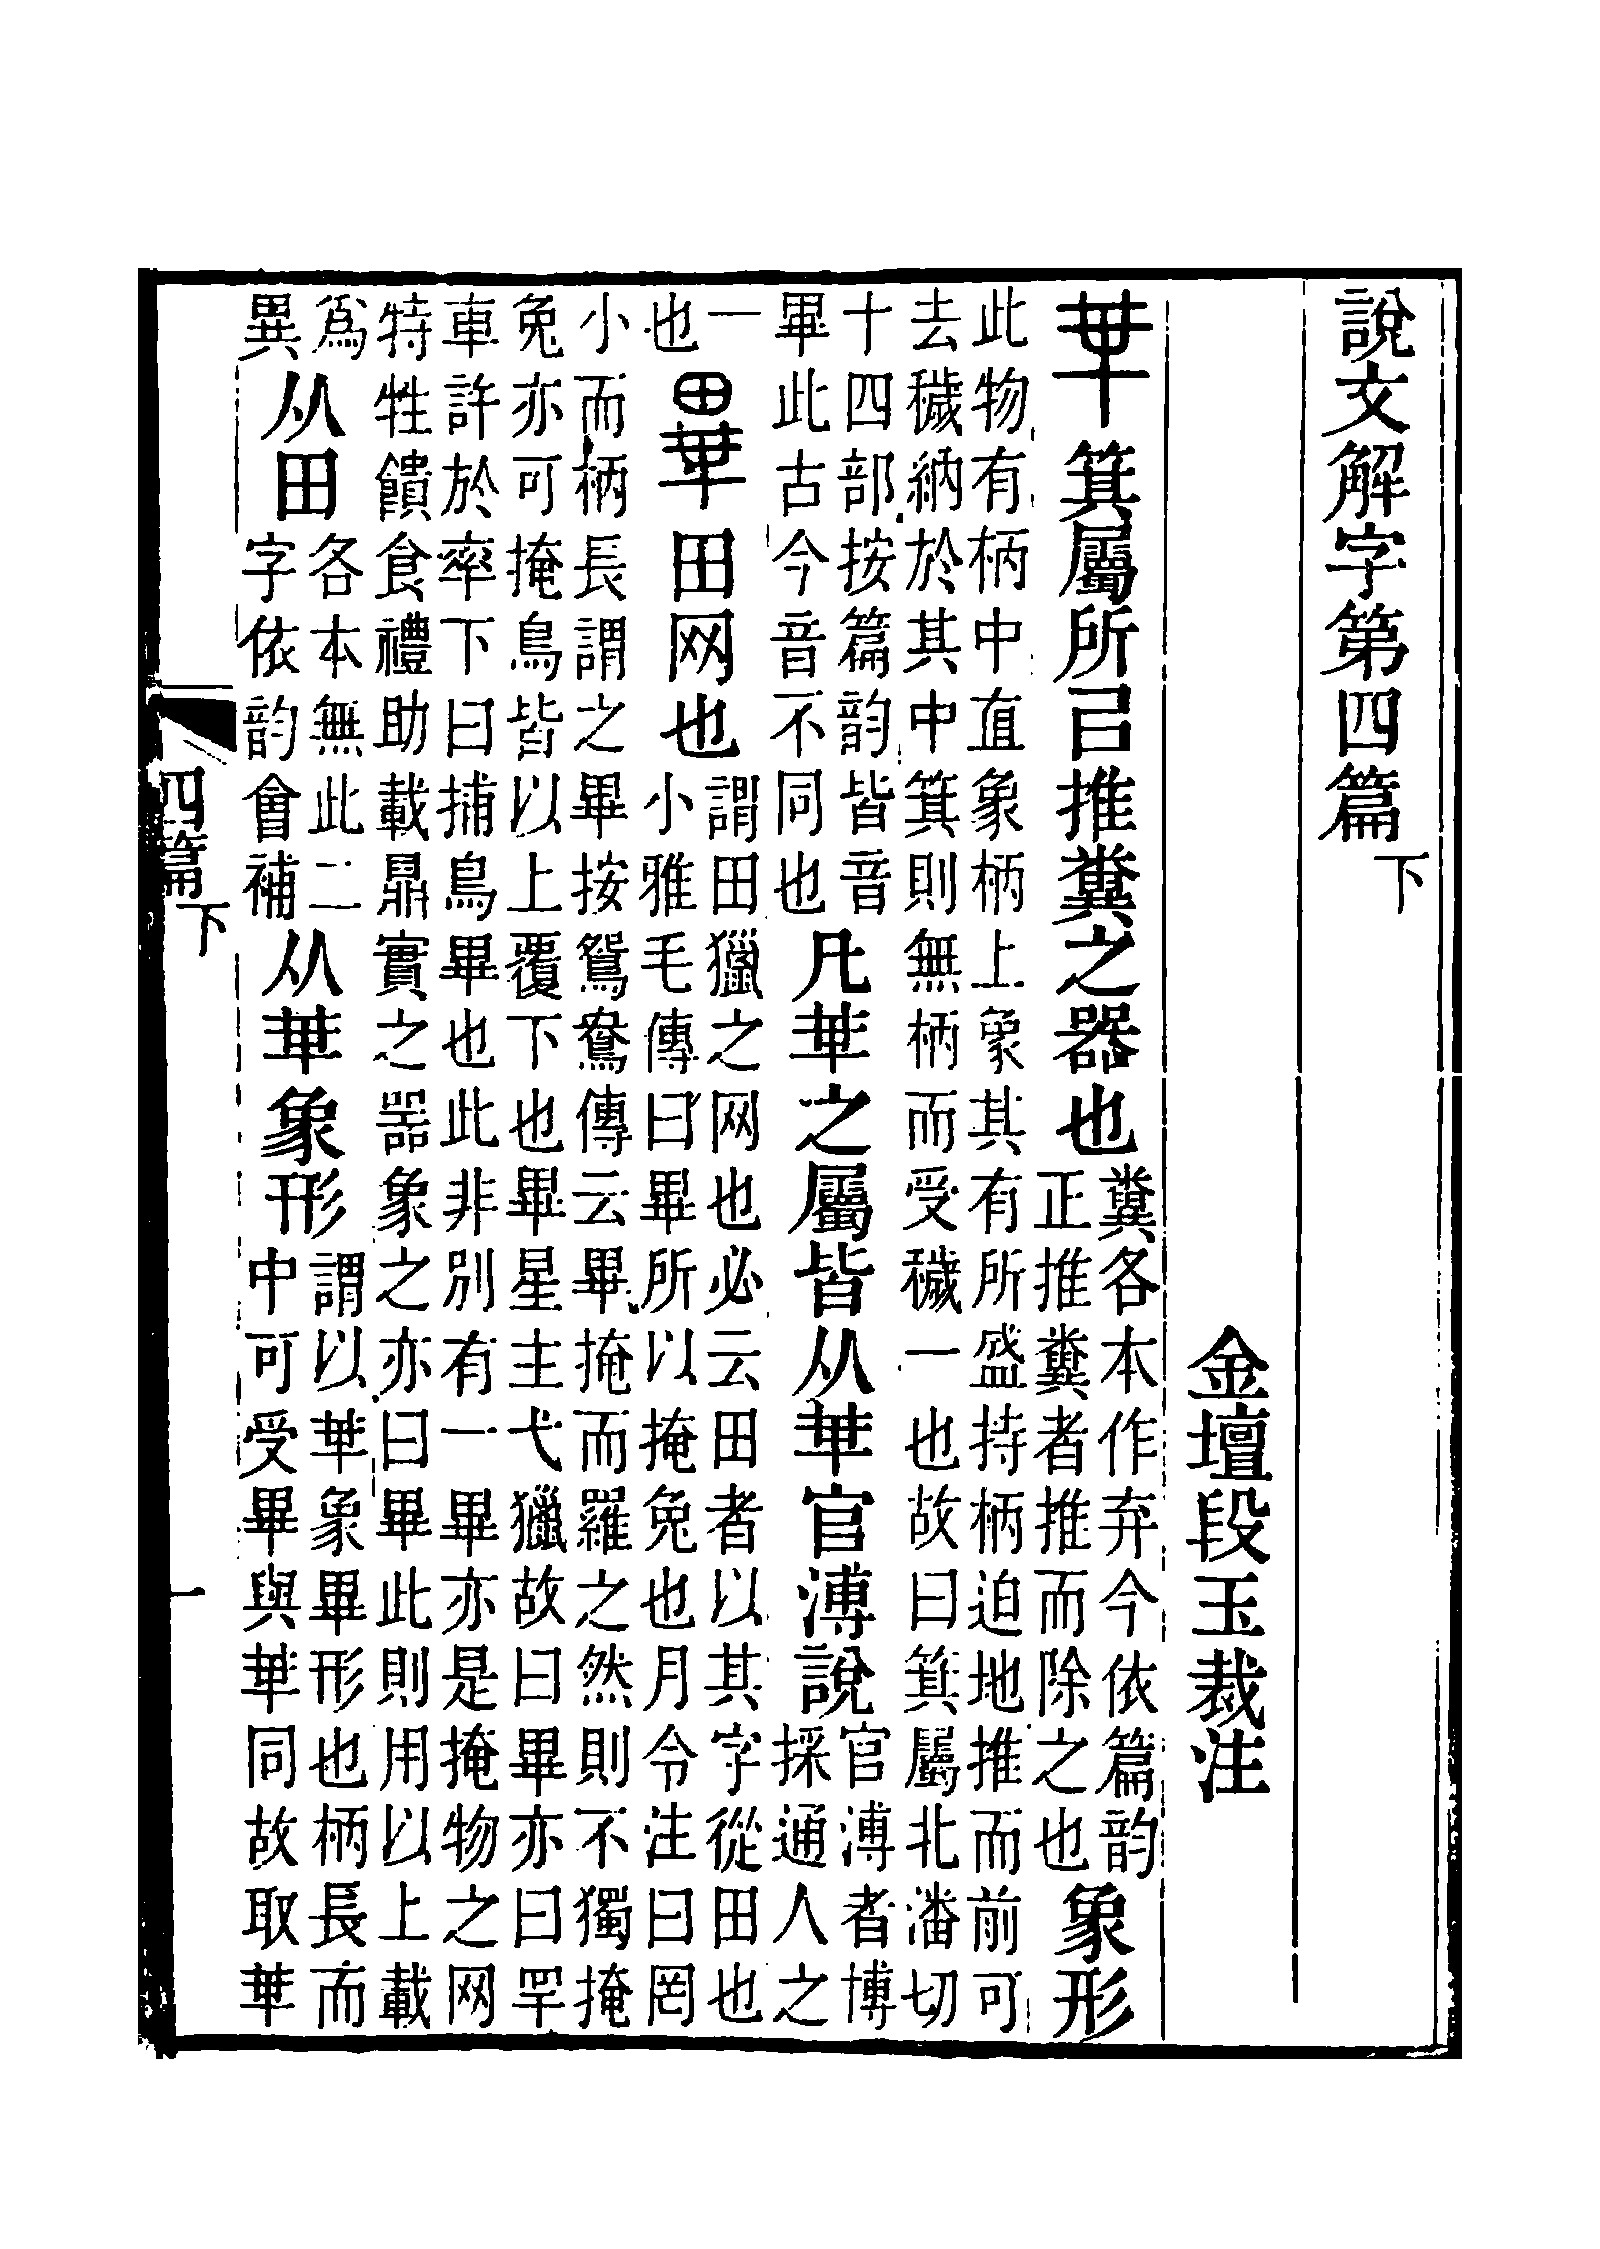 說文解字第四篇下
金壇段玉裁注
𠦒箕屬所㠯推糞之器也糞各本作弃今依篇韵正推糞者推而除之也象形
此物有柄中直象柄上象其有所盛持柄迫地推而前可
去穢納於其中箕則無柄而受穢一也故曰箕屬北潘切
十四部按篇韵皆音畢此古今音不同也凡𠦒之屬皆从𠦒官溥說官溥者博採通人之
一也畢田网也謂田獵之网也必云田者以其字從田也小雅毛傳曰畢所以掩兔也月令注曰罔
小而柄長謂之畢按鴛鴦傳云畢掩而羅之然則不獨掩
兔亦可掩鳥皆以上覆下也畢星主弋獵故曰畢亦曰罕
車許於率下曰捕鳥畢也此非別有一畢亦是掩物之网
特牲饋食禮助載鼎實之器象之亦曰畢此則用以上載
爲異从田各本無此二字依韵會補从𠦒象形謂以𠦒象畢形也柄長而中可受畢與𠦒同故取𠦒
四篇下 一